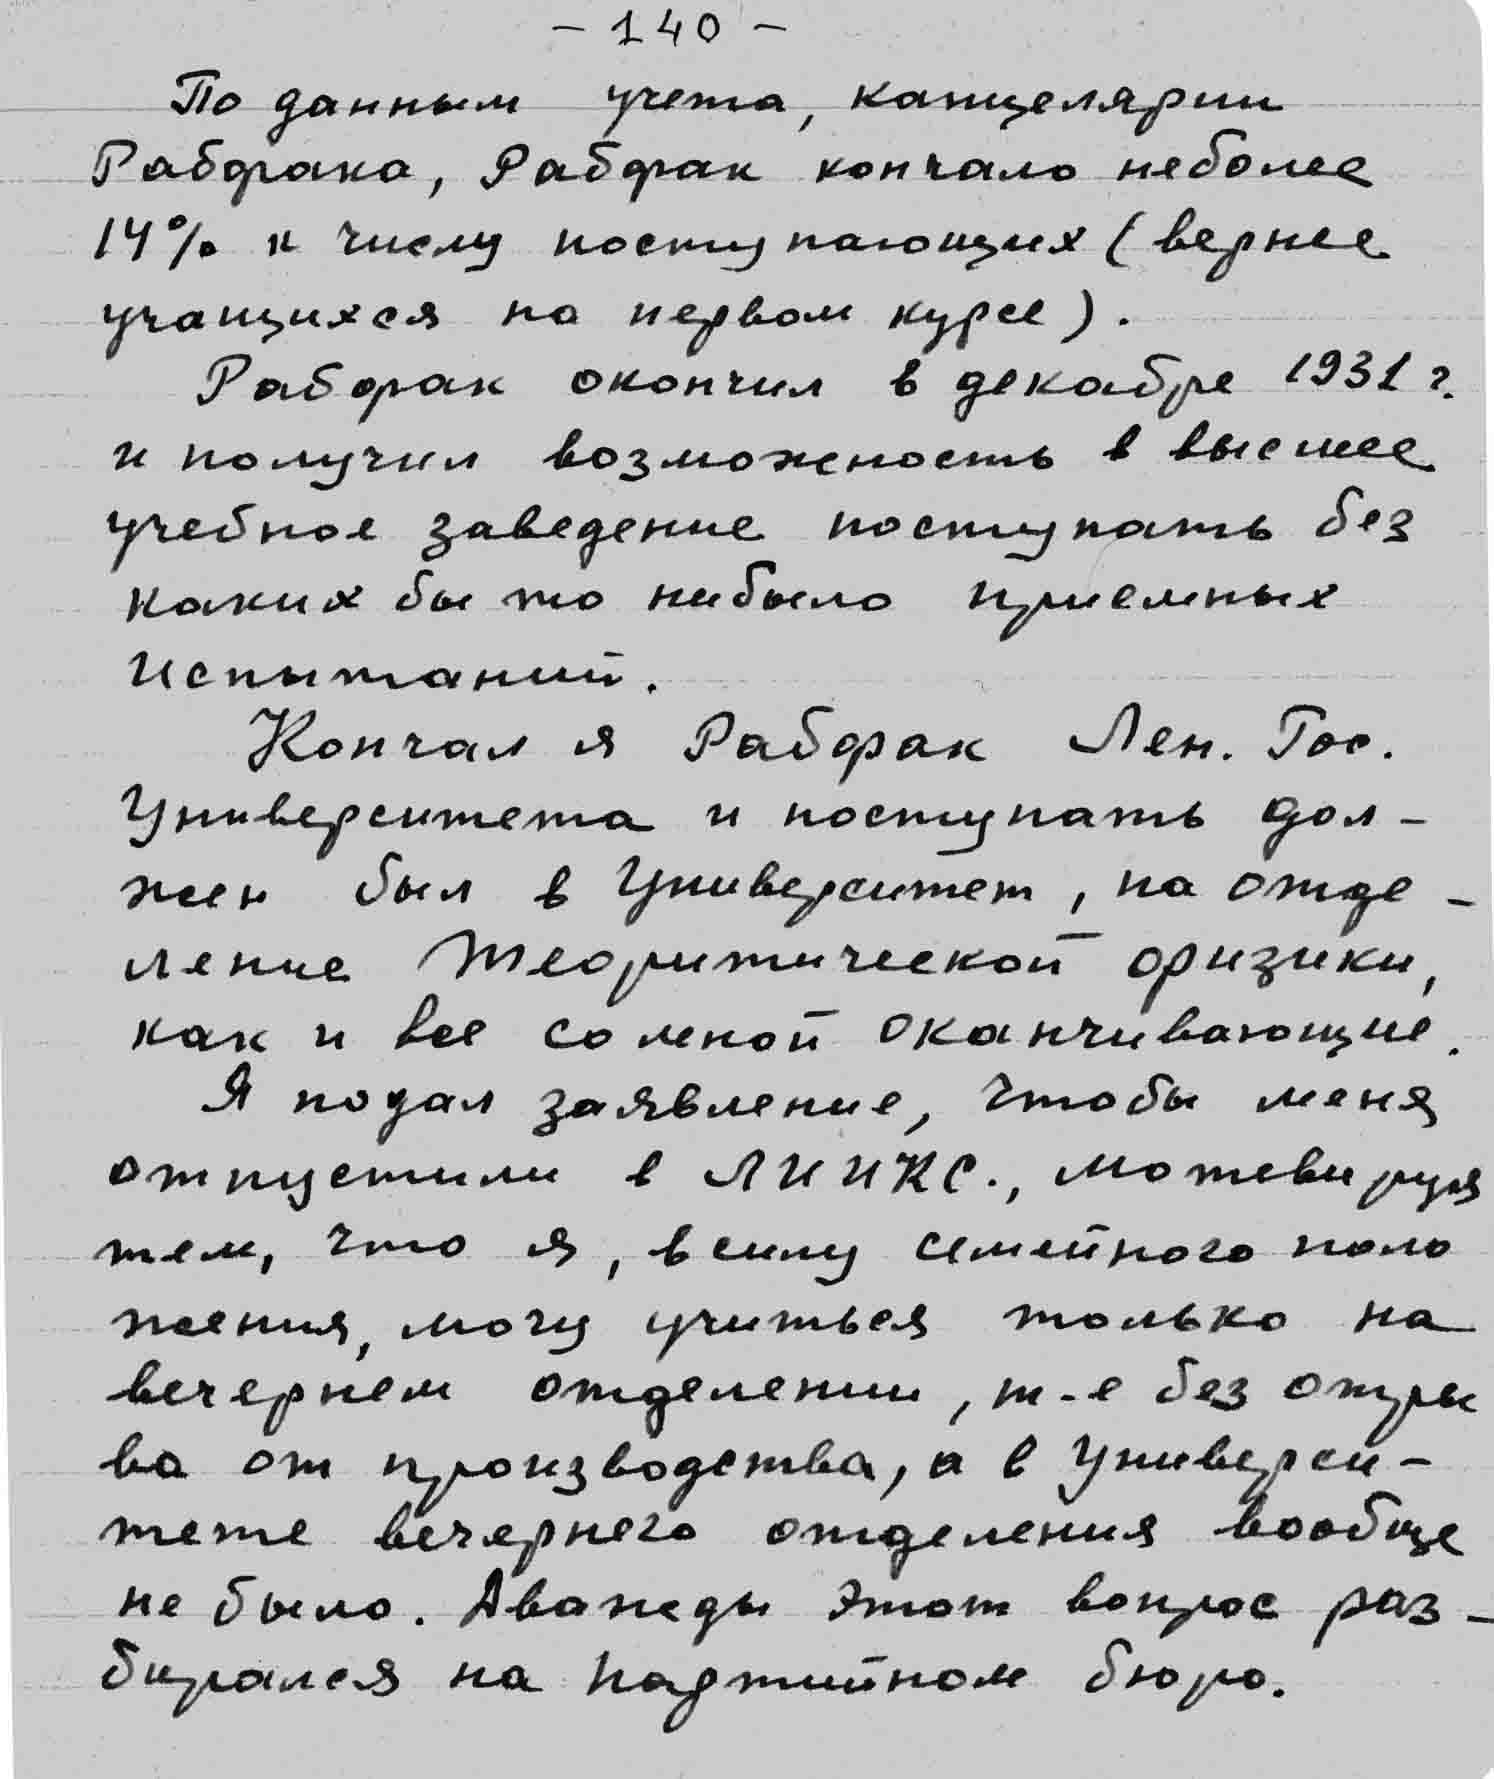 - 140 -
По данным учета, канцелярии
Рабфака, Рабфак кончало неболее
14% к числу поступающих (вернее
учащихся на первом курсе).
Рабфак окончил в декабре 1931 г.
и получил возможность в высшее
учебное заведение поступать без
каких бы то нибыло приемных
испытаний.
Кончал я Рабфак Лен. Гос.
Университета и поступать дол-
жен был в Университет, на отде-
ление теоритической физики,
как и все со мной оканчивающие.
Я подал заявление, чтобы меня
отпустили в ЛИИКС., мотевируя
тем, что я, в силу семейного поло
жения, могу учиться только на
вечернем отделении, т-е без отры
ва от производства, а в Универси-
тете вечернего отделения вообще
не было. Дважды этот вопрос раз-
бирался на партийном бюро.